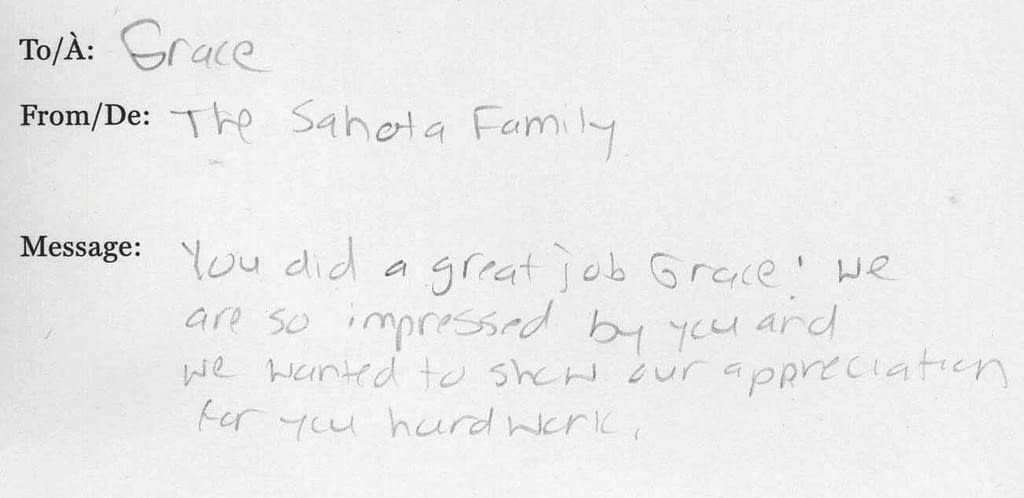 To/À: Grace
From/De: The Sahota Family
Message: You did a great job Grace! We
are so impressed by you and
we wanted to show our appreciation
for you hard work.